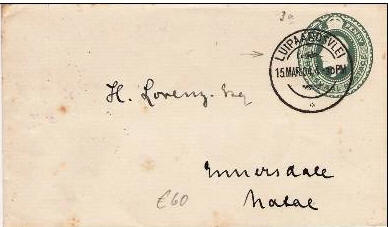 3a
LUIPAARDSVLEI
15 MAR 04
PM
H. Lorenz. Esq
Ennersdale
Natal
£60